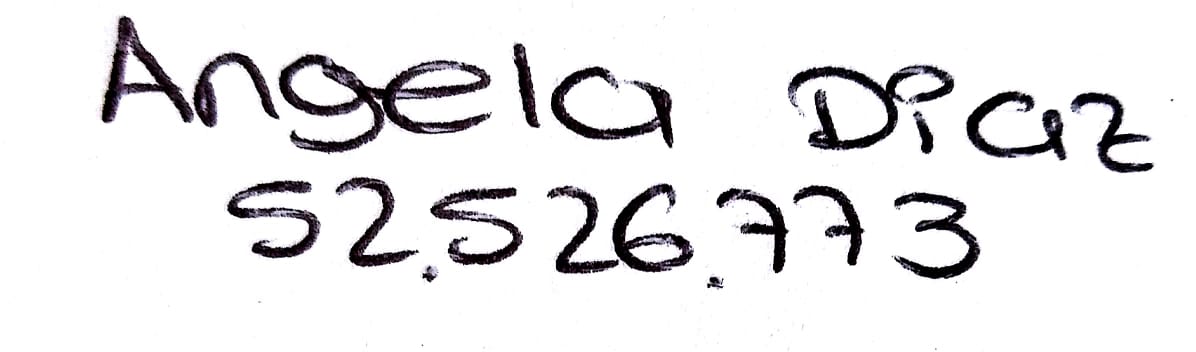 Angela Diaz
52.526.773